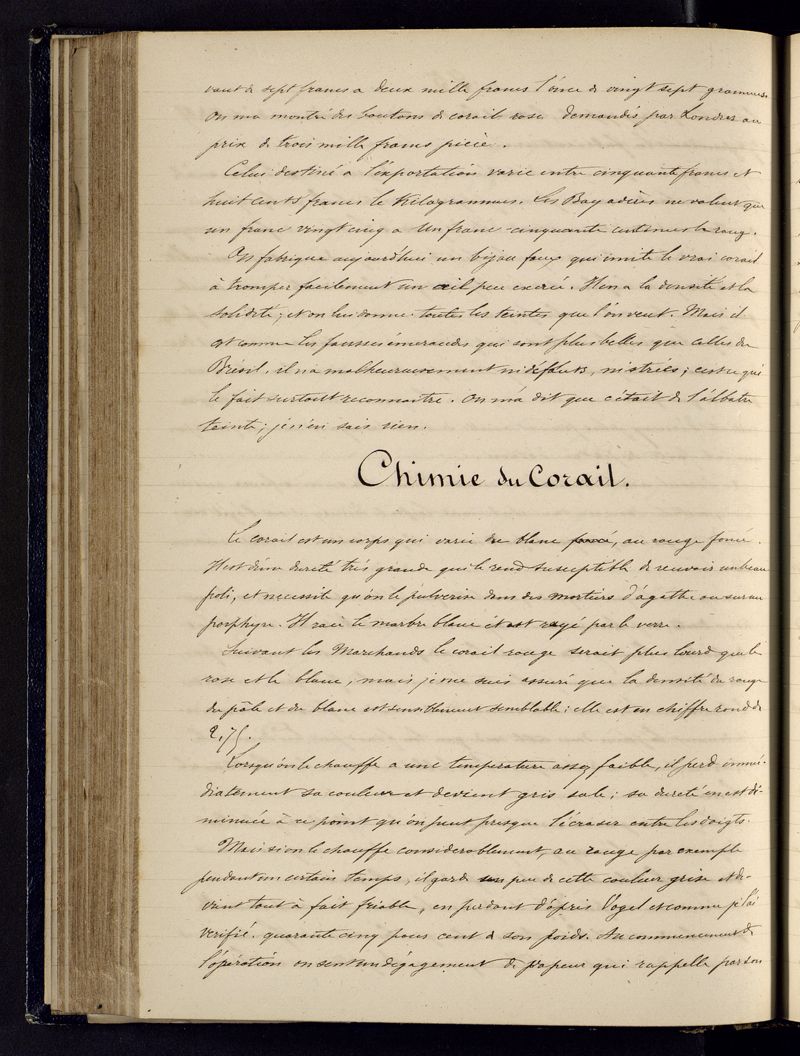 vant de sept francs a deux mille francs l'once de vingt sept grammes.
On m'a montré des boutons de corail rose demandés par Londres au
prix de trois mille francs pièce.
Celui destiné à l'exportation varie entre cinquante francs et
huit cents francs le Kilogramme. Les Bayadères ne valent que
un franc vingt cinq a un franc cinquante centimes le rang.
On fabrique aujourd'hui un bijou faux qui imite le vrai corail
à tromper facilement un œil peu exercé. Il en a la densité et la
solidité; et on lui donne toutes les teintes que l'on veut. Mais il
est comme les fausses émeraudes qui sont plus belles que celles du
Brésil, il n'a malheureusement ni défauts, ni striés; c'est ce qui
le fait surtout reconnaitre. On m'a dit que c'était de l'albatre
teinté; je n'en sais rien.
Chimie du Corail.
Le corail est un corps qui varie du blanc foncé, au rouge foncé.
Il est d'une dureté très grande qui le rend susceptible de recevoir un beau
poli, et necessite qu'on le pulverise dans des mortiers d'agathe ou sur un
porphyre. Il raie le marbre blanc et est rayé par le verre.
Suivant les Marchands le corail rouge serait plus lourd que le
rose et le blanc; mais je me suis assuré que la densité du rouge
du pâle et du blanc est sensiblement semblable: elle est en chiffre rond de
2,75.
Lorsqu'on le chauffe a une temperature assez faible, il perd immé-
diatement sa couleur et devient gris sale; sa dureté en est di-
minuée à ce point qu'on peut presque l'écraser entre les doigts.
Mais si on le chauffe considerablement, au rouge par exemple
pendant un certain temps, il garde un peu de cette couleur grise et de-
vient tout à fait friable, en perdant d'après Vogel et comme je l'ai
verifié, quarante cinq pour cent de son poids. Au commencement de
l'opération on sent un dégagement de vapeur qui rappelle par son